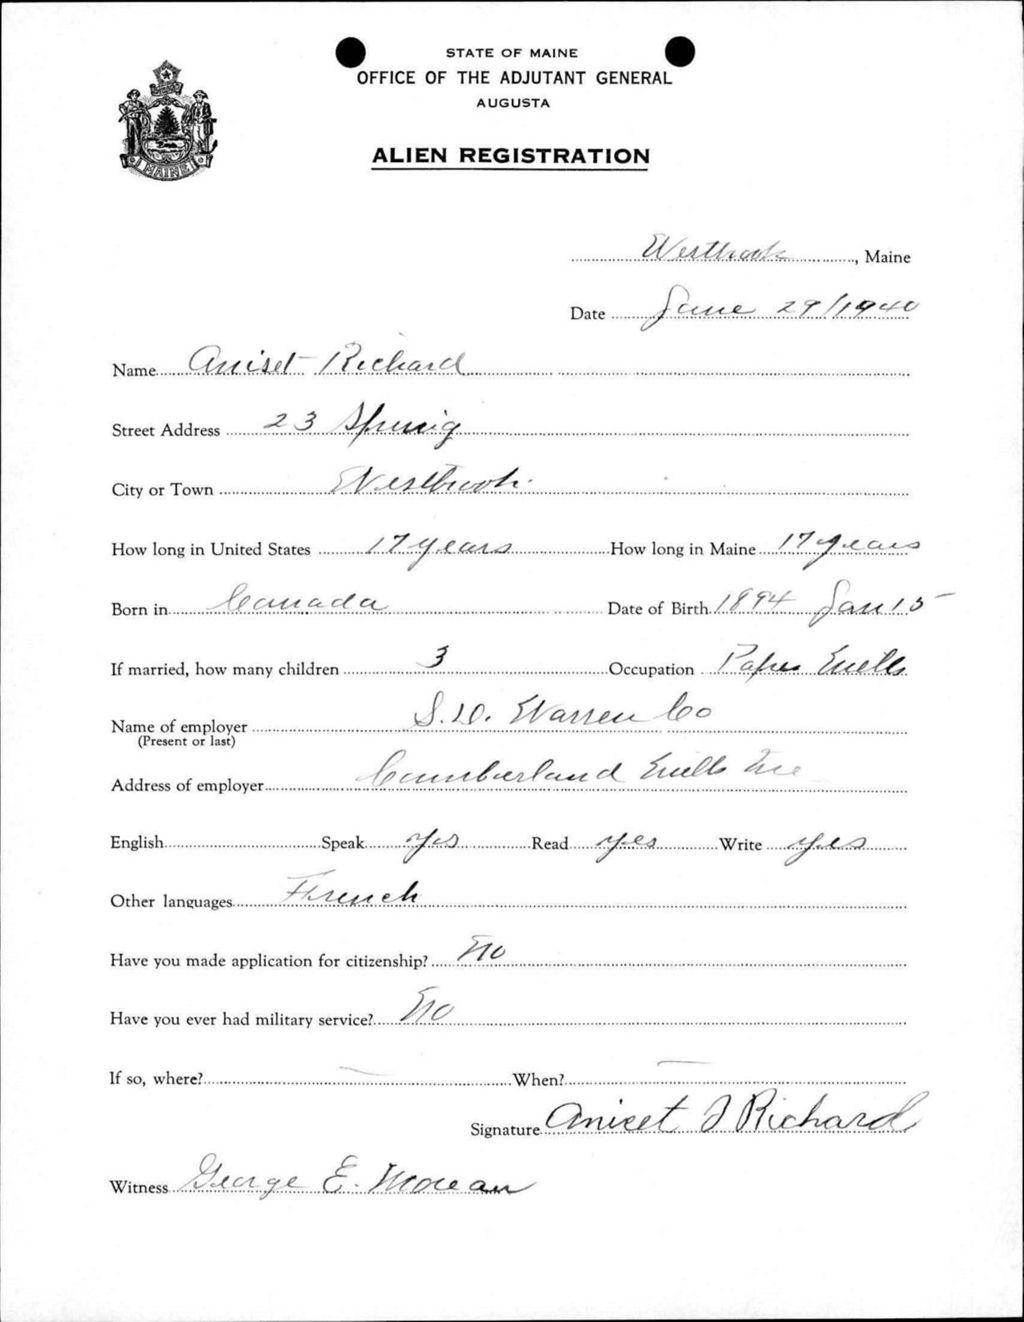 STATE OF MAINE
OFFICE OF THE ADJUTANT GENERAL
AUGUSTA
ALIEN REGISTRATION
MAINE
Westbrook, Maine
Date June 29/1940
Name Aniset Richard
Street Address 23 Spring
City or Town Westbrook
How long in United States 17 years How long in Maine 17 years
Born in Canada Date of Birth 1894 Jan 15
If married, how many children 3 Occupation Paper Mills
Name of employer S.D. Warren Co
(Present or last)
Address of employer Cumberland Mills Me
English Speak yes Read yes Write yes
Other languages French
Have you made application for citizenship? No
Have you ever had military service? No
If so, where? — When? —
Signature Aniset J Richard
Witness George E. Morean